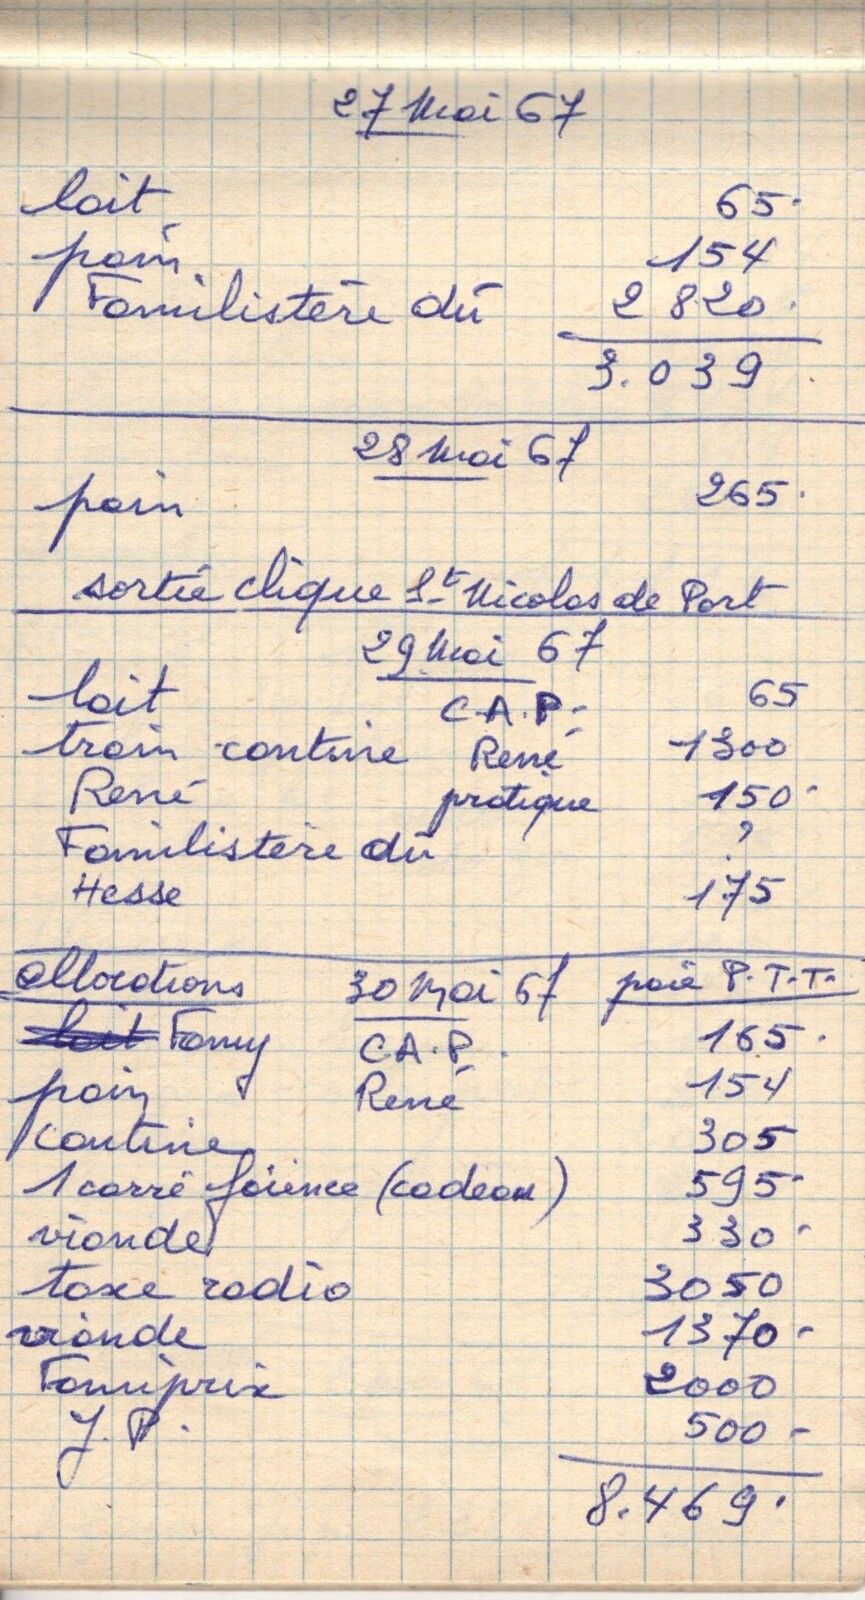 27 Mai 67
lait 65.
pain 154
Familistère dû 2820.
3.039
28 Mai 67
pain 265.
sortie clique St Nicolas de Port
29 Mai 67
lait C.A.P. 65
train cantine René 1300
René pratique 150
Familistère dû ?
Hesse 175
allocations 30 Mai 67 paie P.T.T.
Famy C.A.P. 165.
pain René 154
cantine 305
1 carré faïence (cadeau) 595
viande 330
taxe radio 3050
viande 1370
Famiprix 2000
J.P. 500
8.469.